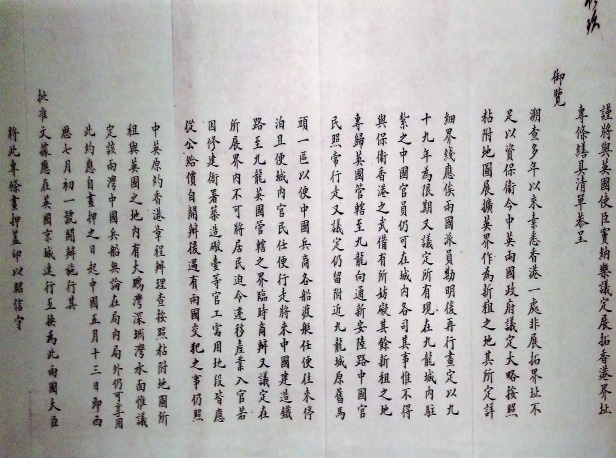 謹將與英國使臣竇納樂議定展拓香港界址
專條繕具清單恭呈
御覽
溯查多年以來素悉香港一處非展拓界址不
足以資保衛今中英兩國政府議定大略按照
粘附地圖展擴英界作為新租之地其所定詳
細界綫應俟兩國派員勘明後再行畫定以九
十九年為限期又議定所有現在九龍城內駐
紮之中國官員仍可在城內各司其事惟不得
與保衛香港之武備有所妨礙其餘新租之地
專歸英國管轄至九龍向通新安陸路中國官
民照常行走又議定仍留附近九龍城原舊馬
頭一區以便中國兵商各船渡艇任便往來停
泊且便城內官民任便行走將來中國建造鐵
路至九龍英國管轄之界臨時商辦又議定在
所展界內不可將居民迫令遷移產業入官若
因修建衙署築造礮臺等官工需用地段皆應
從公給價自開辦後遇有兩國交犯之事仍照
中英原約香港章程辦理查按照粘附地圖所
租與英國之地內有大鵬灣深圳灣水面惟議
定該兩灣中國兵船無論在局內局外仍可享用
此約應自畫押之日起中國五月十三日即西
應七月初一號開辦施行其
批准文據應在英國京城速行互換為此兩國大臣
將此專條畫押蓋印以昭信守